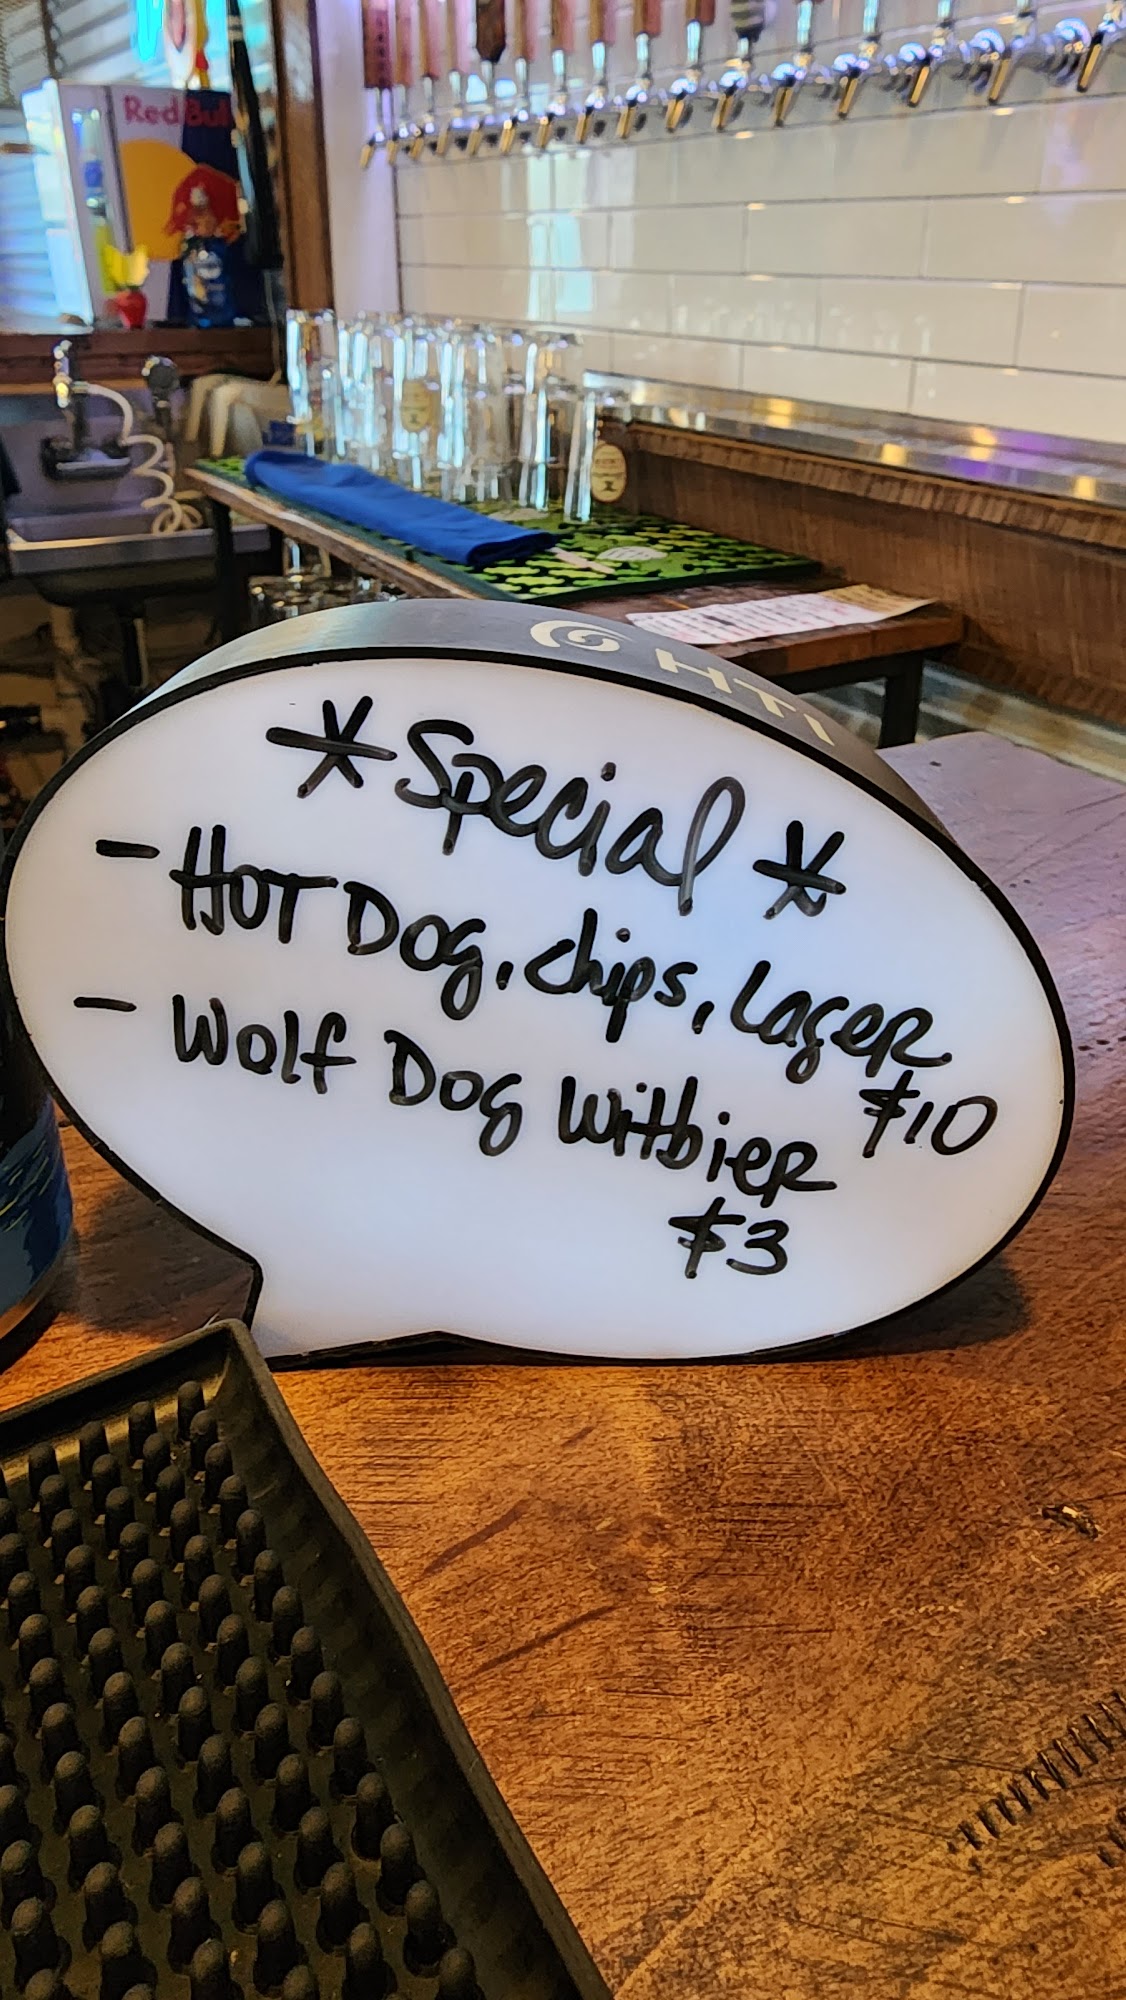 Red Bull
HTI
* Special *
- HOT DOG, chips, Lager
$10
- Wolf DOG Witbier
$3